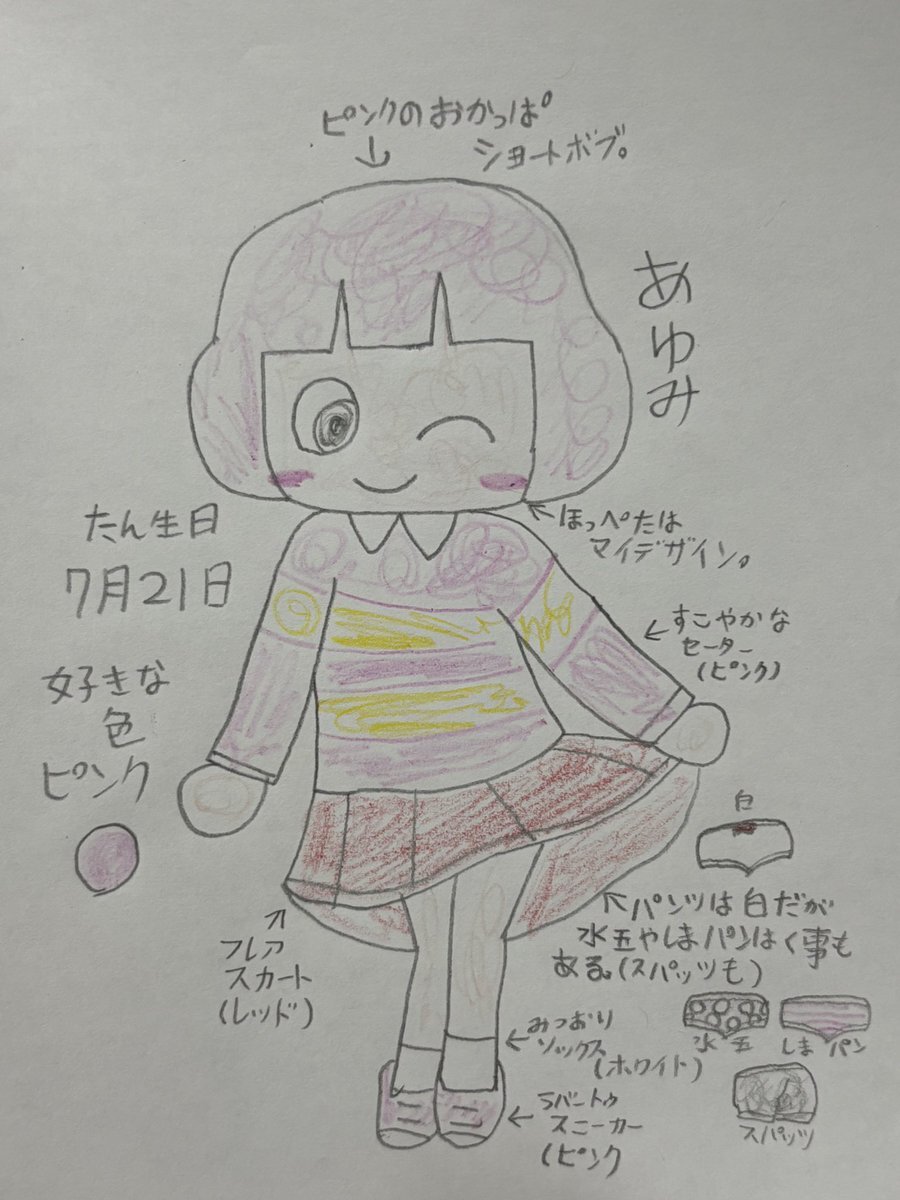 ピンクのおかっぱ
ショートボブ。
あゆみ
たん生日
7月21日
好きな
色
ピンク
ほっぺたは
マイデザイン。
すこやかな
セーター
(ピンク)
白
パンツは白だが
水玉やしまパンはく事も
ある。(スパッツも)
水玉
しまパン
スパッツ
フレア
スカート
(レッド)
みつおり
ソックス
(ホワイト)
ラバートゥ
スニーカー
(ピンク